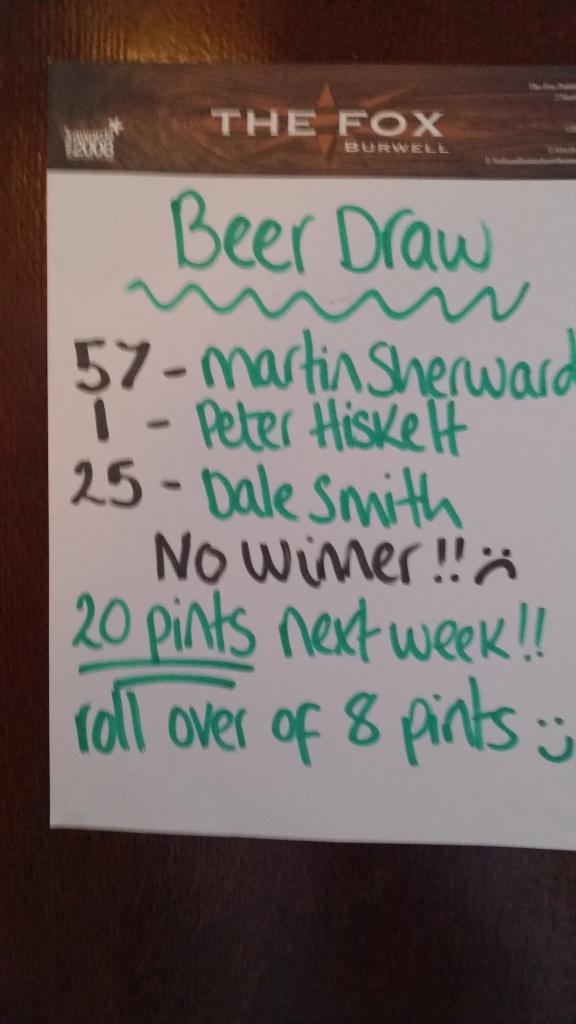 THE FOX
BURWELL
awards
2008
Beer Draw
57 - Martin Sherward
1 - Peter Hiskett
25 - Dale Smith
No Winner!! :(
20 pints next week!!
roll over of 8 pints :)